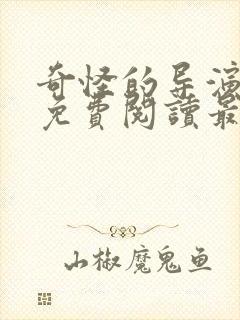 奇怪的导演
免費閱讀最
山椒魔鬼鱼